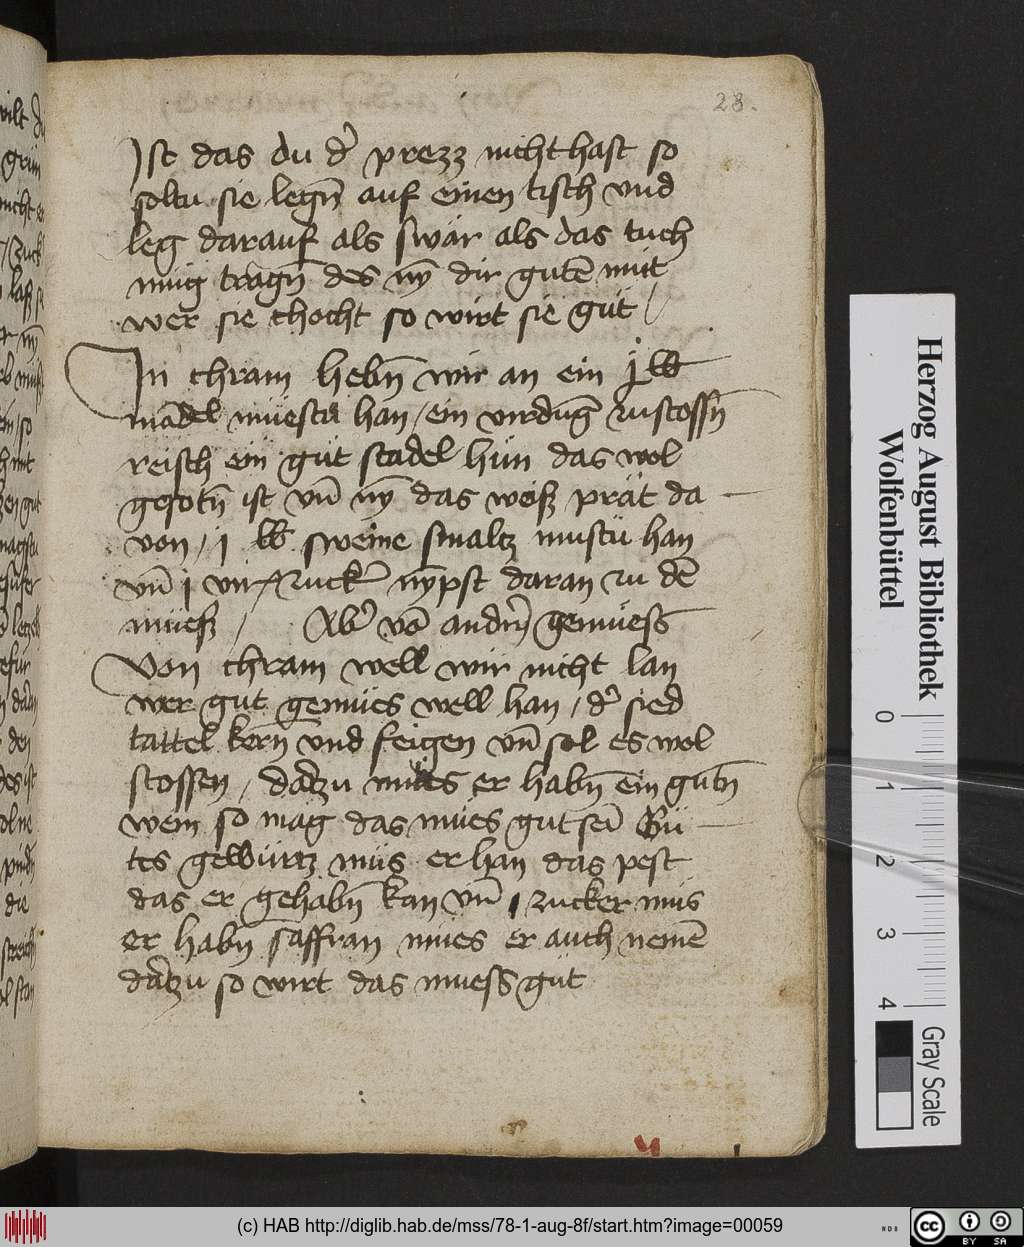 28.
Ist das du dʼ prezz nicht hast so
soltu sie legn̄ auf einen tisch vnd
leg darauf als swär als das tuch
müg tragn̄ des nÿ dir gutē müt
wer sie chocht so wirt sie güt /
In chram hebn̄ wir an ein j lb
mādel müestu han / ein virdūg zustossn̄
reisch ein güt stadel hün das wol
gesotn̄ ist vn̄ nÿ das weiß prät da
von / j lb sweine smaltz mustu han
vn̄ j zuckʼ nÿpst daran zu dē
müeß / Abʼ vō andn̄ gemüess
Von chram well wir nicht lan
wer gut gemües well han / dʼ sied
tattel kern̄ vnd feigen vn̄ sol es wol
stossen / datzu mües er habn̄ ein gutn̄
wein so mag das mües gut sei Gü
tes gewürtz müs er han das pest
das er gehabn̄ kan vn̄ j zucker müs
er habn̄ saffran mües er auch nemē
datzu so wirt das muess güt
Herzog August Bibliothek
Wolfenbüttel
0 1 2 3 4
Gray Scale
(c) HAB http://diglib.hab.de/mss/78-1-aug-8f/start.htm?image=00059
WDB
cc BY SA